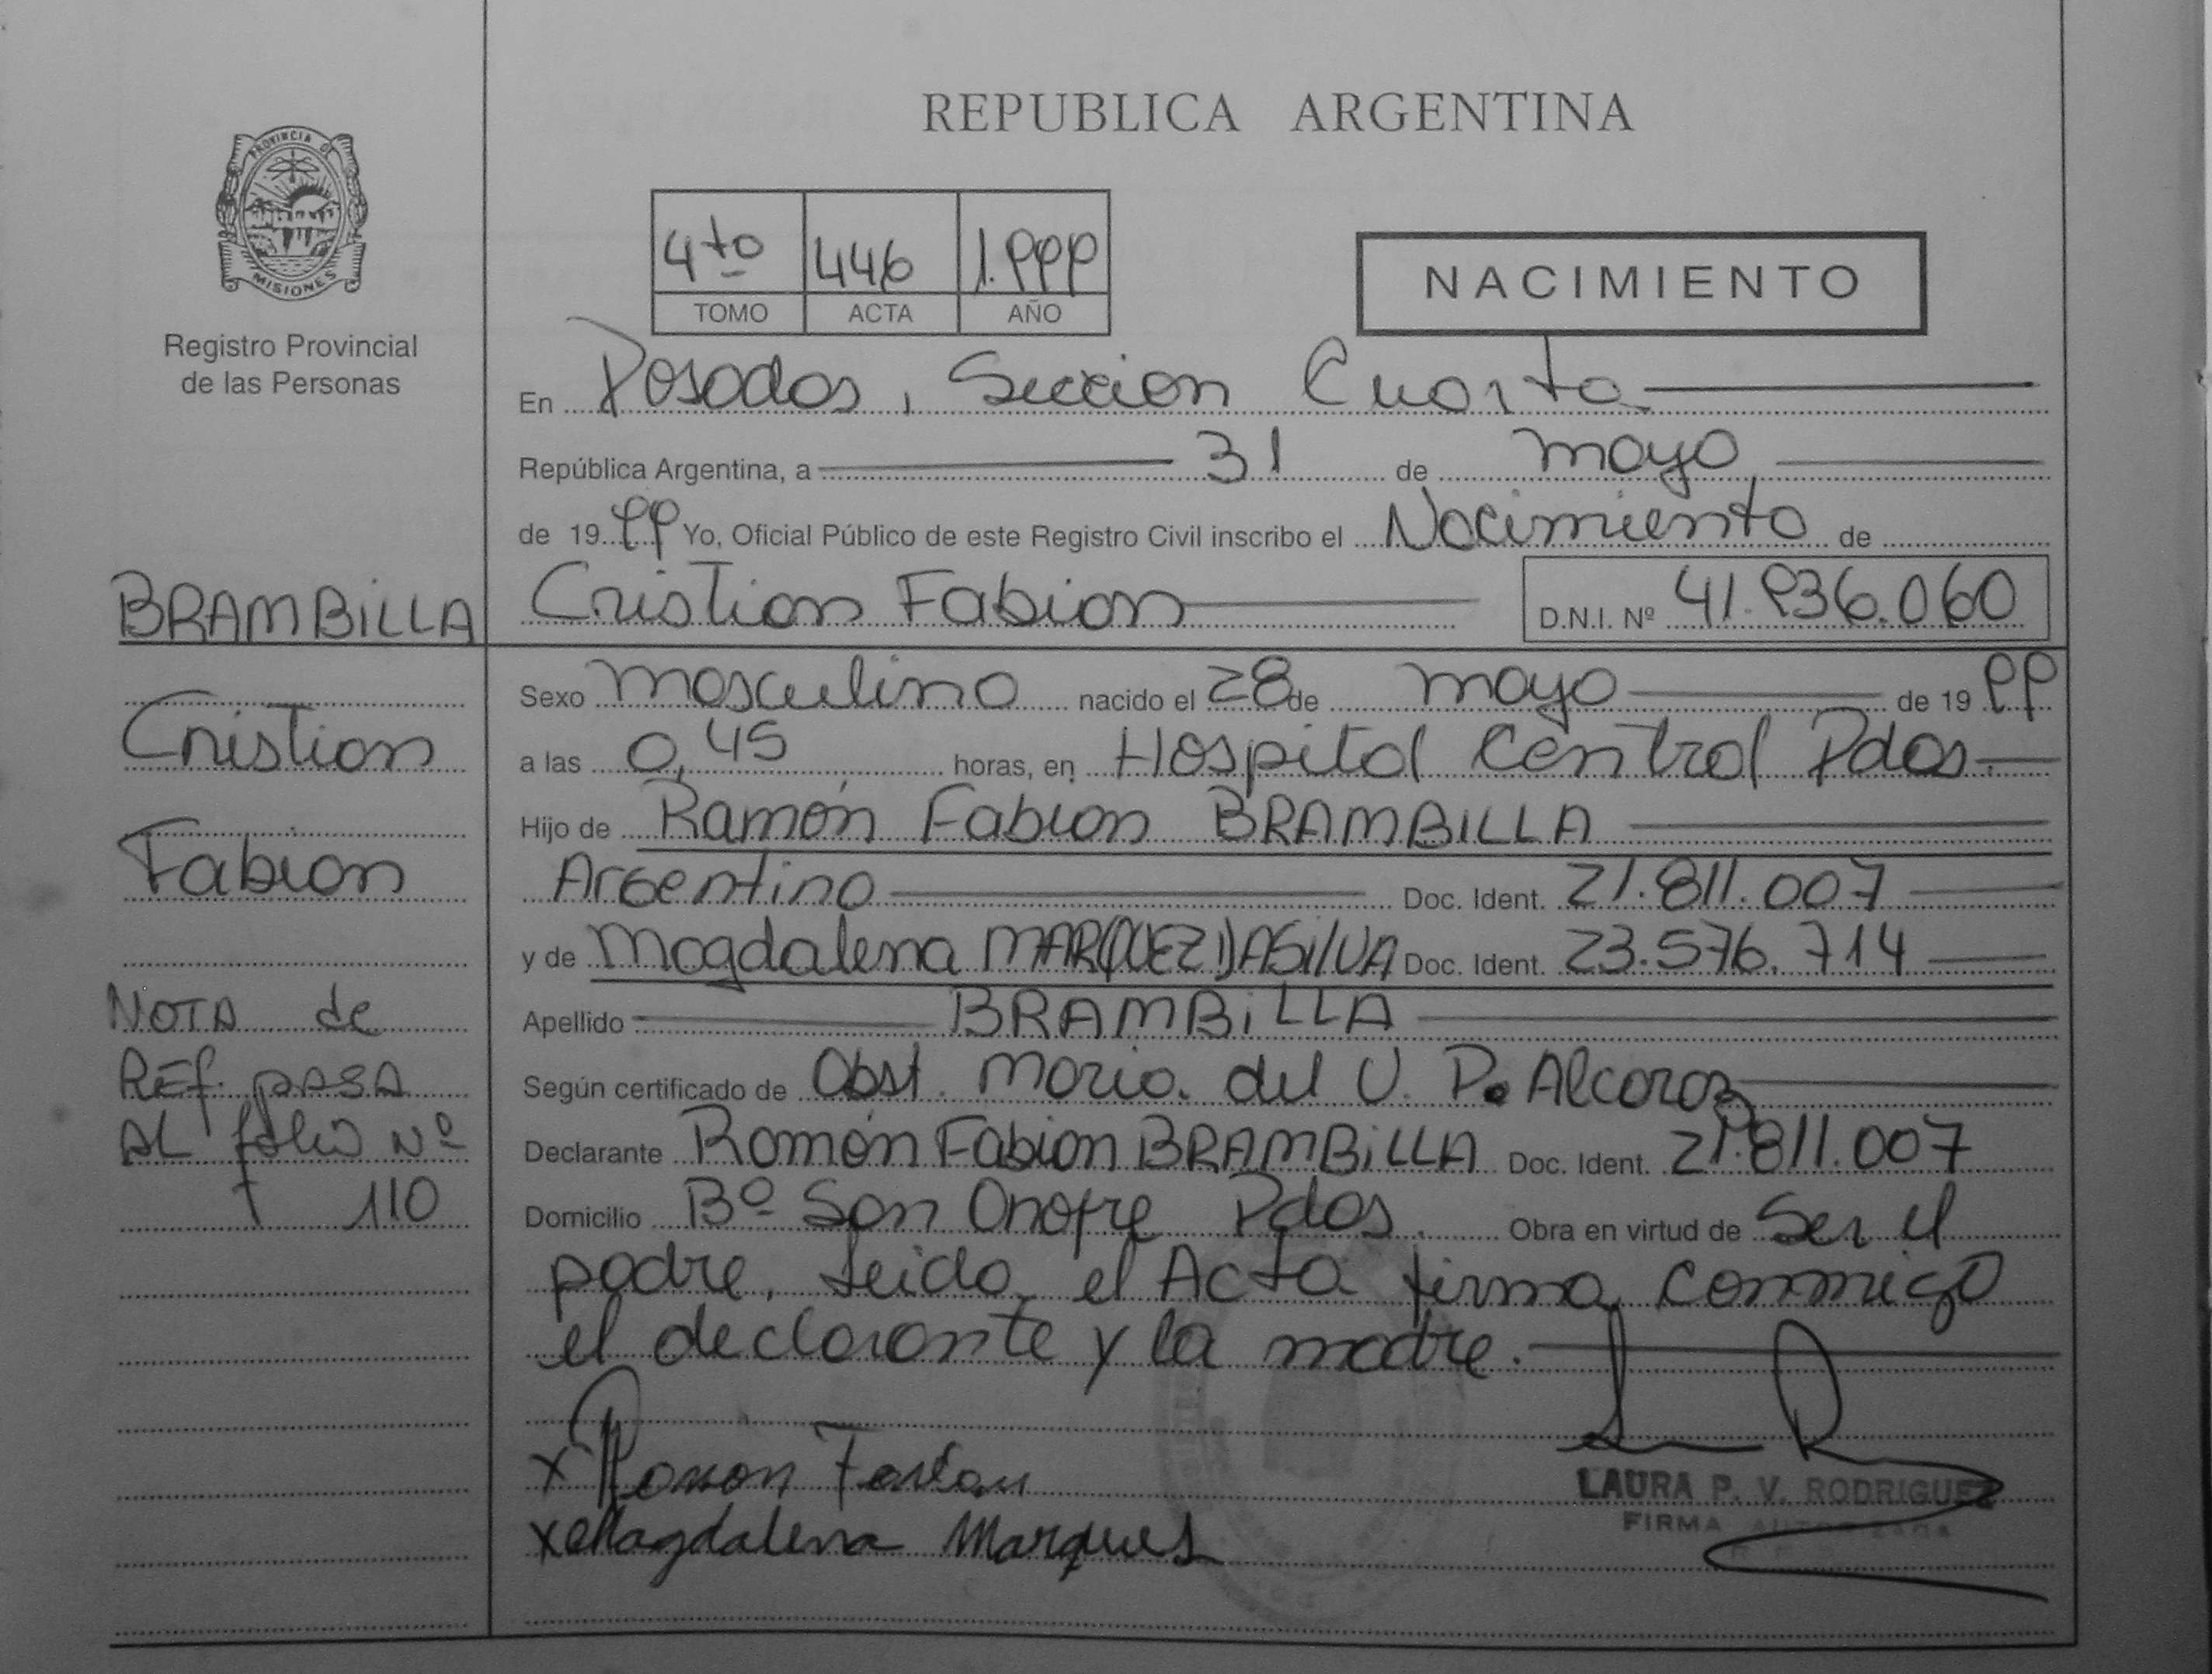 REPUBLICA ARGENTINA
PROVINCIA D
MISIONES
Registro Provincial
de las Personas
4to 446 1.999
TOMO ACTA AÑO
NACIMIENTO
En Posadas, Sección Cuarta
República Argentina, a 31 de mayo
de 1999 Yo, Oficial Público de este Registro Civil inscribo el Nacimiento de
BRAMBILLA Cristian Fabian D.N.I. Nº 41.936.060
Sexo masculino nacido el 28 de mayo de 1999
Cristian
a las 0,45 horas, en Hospital Central Pdas.
Hijo de Ramón Fabian BRAMBILLA
Fabian
Argentino Doc. Ident. 21.811.007
y de Magdalena MARQUEZ DASILVA Doc. Ident. 23.576.714
NOTA de
Apellido BRAMBILLA
REF. PASA
Según certificado de Obst. Maria del V. P. Alcaraz
AL folio Nº
Declarante Ramón Fabian BRAMBILLA Doc. Ident. 21.811.007
110
Domicilio Bº San Onofre Pdas. Obra en virtud de Ser el
padre, leida el Acta firma conmigo
el declarante y la madre.
x Ramon Fabian
x Magdalena Marques
LAURA P. V. RODRIGUEZ
FIRMA AUTORIZADA